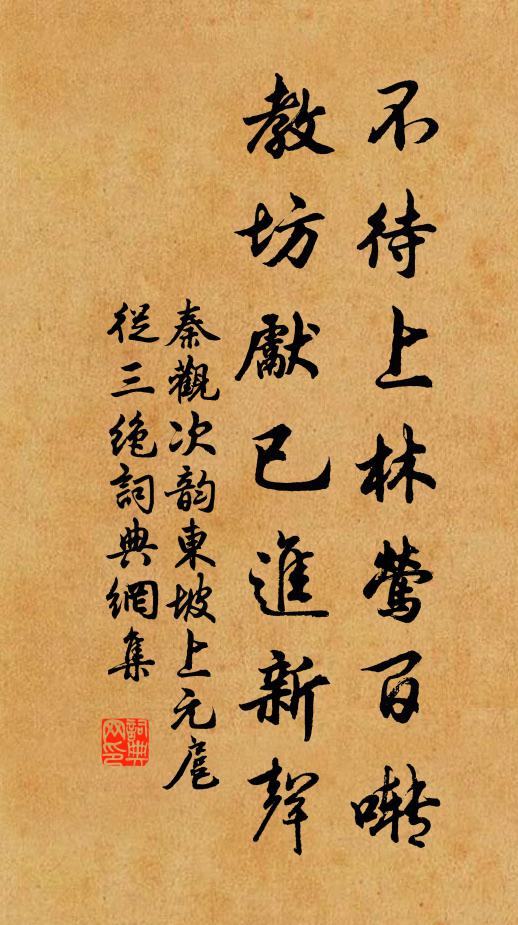 不待上林鶯百囀
教坊獻已進新聲
秦觀次韵東坡上元扈
從三绝詞典網集
詞典網印